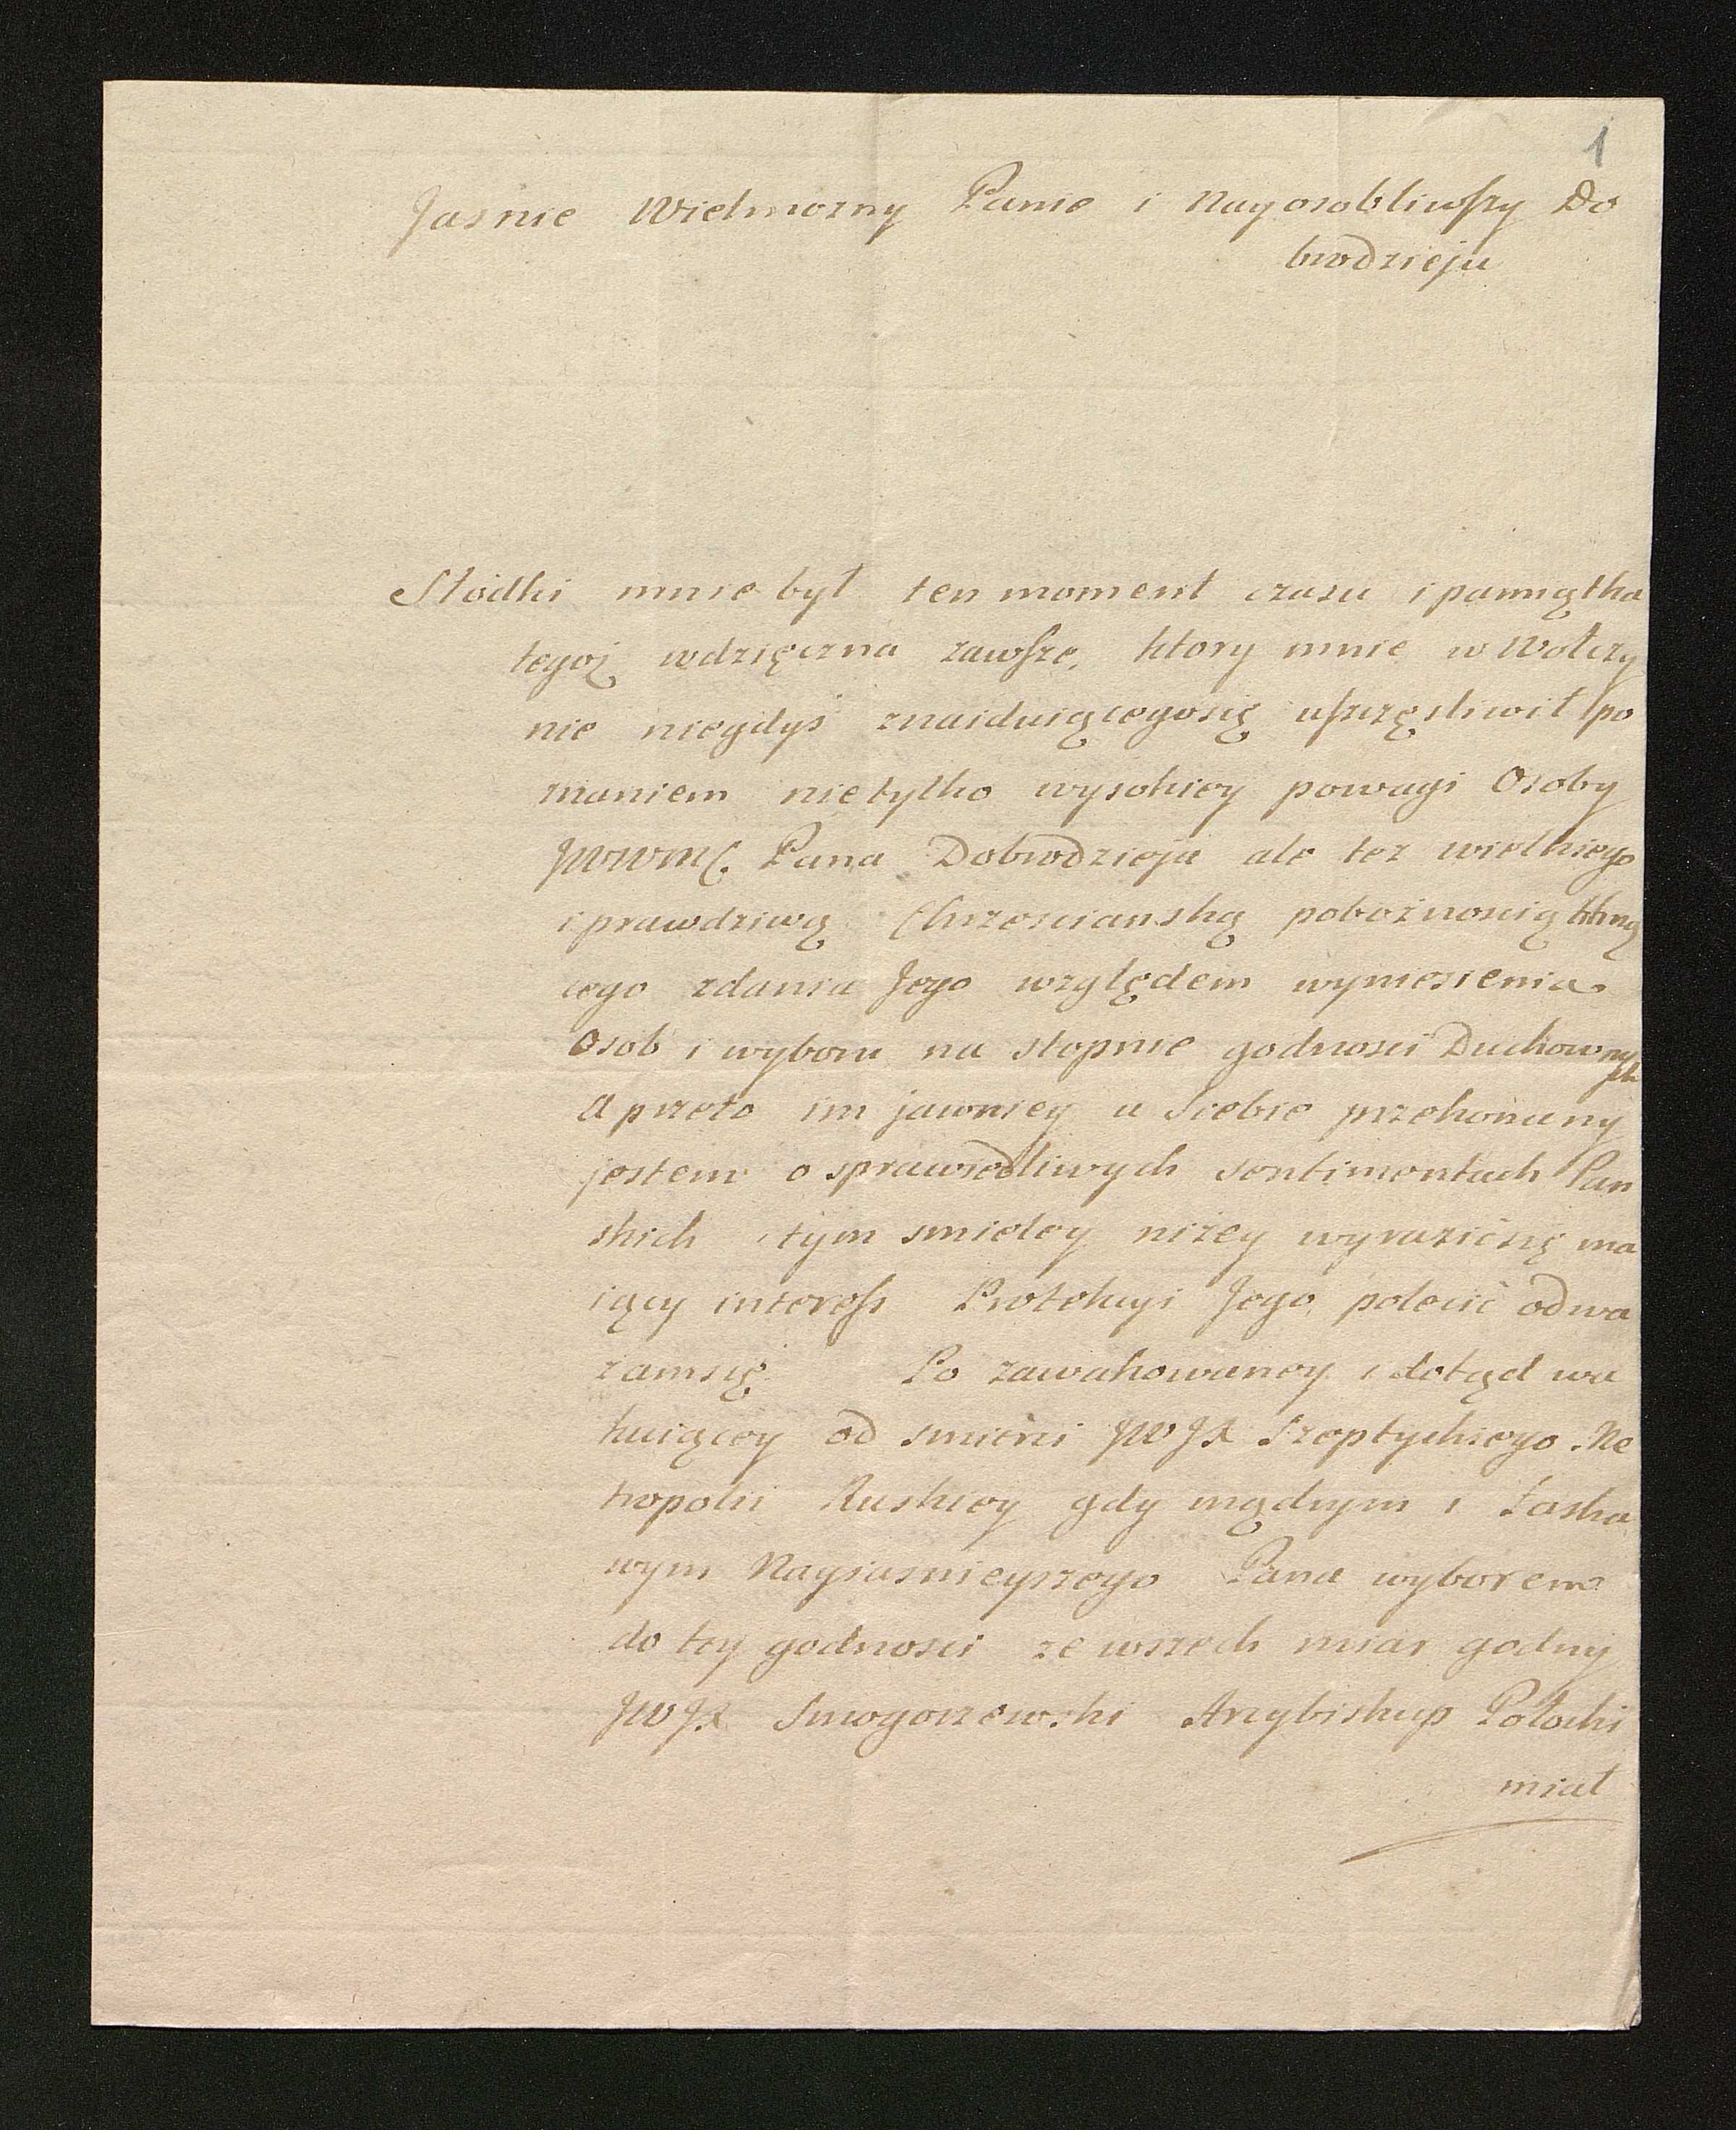 1
Jasnie Wielmozny Panie i Nayosobliwszy Do
brodzieju
Słodki mnie był ten moment czasu i pamiątka
tegoż wdzięczna zawsze, ktory mnie w Wołczy
nie niegdyś znaiduiącegosię uszczęsliwił po
znaniem nietylko wysokiey powagi Osoby
JWWMC. Pana Dobrodzieja ale tez wielkiego
i prawdziwą Chrzescianską poboznoscią tchną
cego zdania Jego względem wyniesienia
Osob i wyboru na stopnie godnosci Duchownych
A przeto im jawniey u siebie przekonany
jestem o sprawiedliwych sentimentach Pan
skich tym smieley nizey wyrazićsię ma
iący interess Protekcyi Jego polecić odwa
zamsię Po zawakowaney i dotąd wa
kuiącey od smierci JWJX Szeptyckiego Me
tropolii Ruskiey gdy mądrym i Łaska
wym Nayiasnieyszego Pana wyborem
do tey godnosci ze wszech miar godny
JWJX Smogorzewski Arcybiskup Połocki
miał